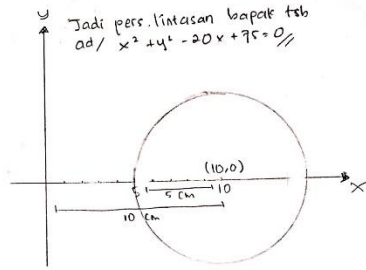 y
Jadi pers. lintasan bapak tsb
ad/ x² + y² - 20x + 75 = 0 //
(10,0)
5
10
x
5 cm
10 cm